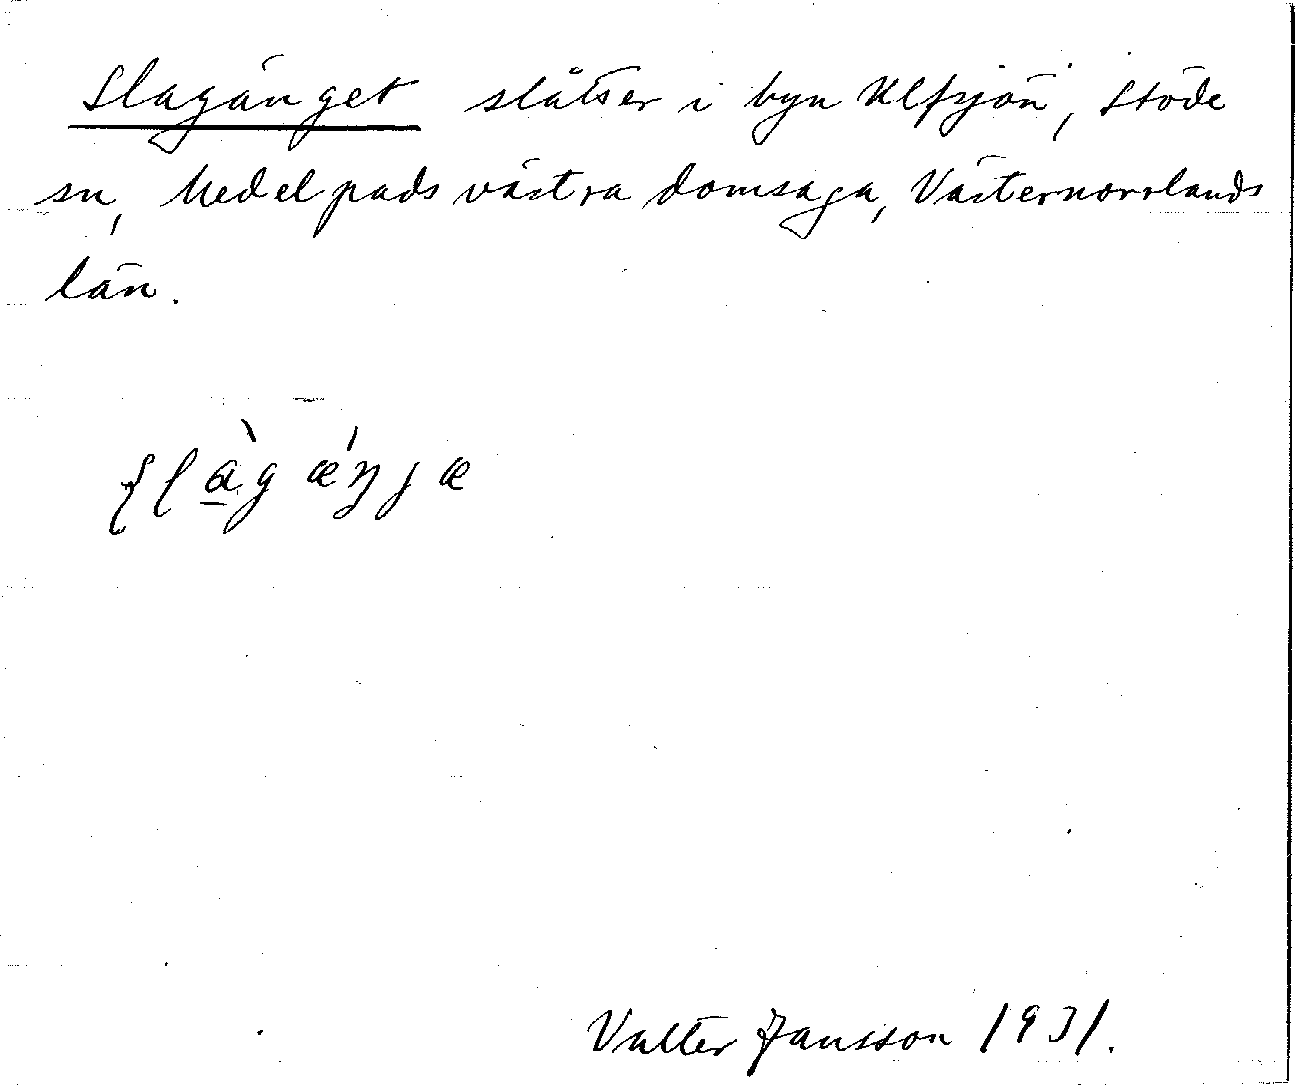 Slagänget slåtser i byn Ulfsjön, Stöde
sn, Medelpads västra domsaga, Västernorrlands
län.
Valter Jansson 1931.